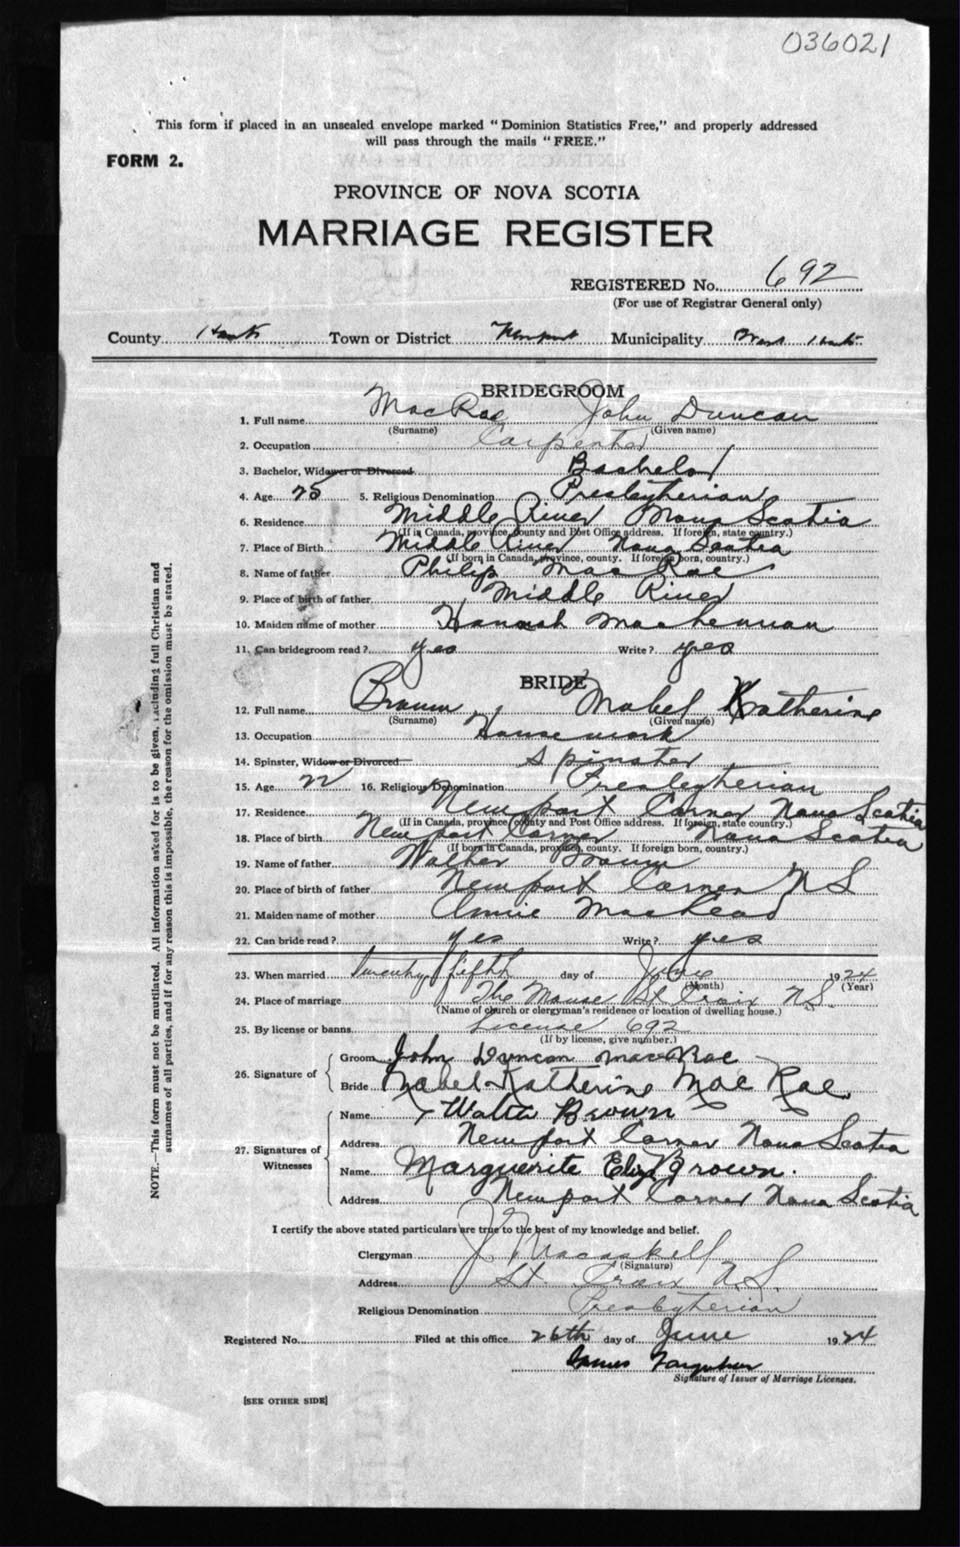 036021
This form if placed in an unsealed envelope marked "Dominion Statistics Free," and properly addressed
will pass through the mails "FREE."
FORM 2.
PROVINCE OF NOVA SCOTIA
MARRIAGE REGISTER
REGISTERED No. 692
(For use of Registrar General only)
County Hants Town or District Newport Municipality West Hants
BRIDEGROOM
1. Full name MacRae John Duncan
(Surname) (Given name)
2. Occupation Carpenter
3. Bachelor, Widower or Divorced Bachelor
4. Age 25 5. Religious Denomination Presbyterian
6. Residence Middle River Nova Scotia
(If in Canada, province, county and Post Office address. If foreign, state country.)
7. Place of Birth Middle River Nova Scotia
(If born in Canada, province, county. If foreign born, country.)
8. Name of father Philip MacRae
9. Place of birth of father Middle River
10. Maiden name of mother Hannah MacLennan
11. Can bridegroom read? yes Write? yes
BRIDE
12. Full name Brown Mabel Katherine
(Surname) (Given name)
13. Occupation Housework
14. Spinster, Widow or Divorced Spinster
15. Age 22 16. Religious Denomination Presbyterian
17. Residence Newport Corner Nova Scotia
(If in Canada, province, county and Post Office address. If foreign, state country.)
18. Place of birth Newport Corner Nova Scotia
(If born in Canada, province, county. If foreign born, country.)
19. Name of father Walter Brown
20. Place of birth of father Newport Corner N S
21. Maiden name of mother Annie MacLead
22. Can bride read? yes Write? yes
23. When married twenty fifth day of June 1924
(Month) (Year)
24. Place of marriage The Manse St Croix N.S.
(Name of church or clergyman's residence or location of dwelling house.)
25. By license or banns License 692
(If by license, give number.)
26. Signature of Groom John Duncan MacRae
Bride Mabel Katherine Mac Rae
27. Signatures of Witnesses Name Walter Brown
Address Newport Corner Nova Scotia
Name Marguerite Eliz. Brown.
Address Newport Corner Nova Scotia
I certify the above stated particulars are true to the best of my knowledge and belief.
Clergyman J. Macaskill
(Signature)
Address St. Croix N.S.
Religious Denomination Presbyterian
Registered No. Filed at this office 26th day of June 1924
James
Signature of Issuer of Marriage Licenses.
[SEE OTHER SIDE]
NOTE.—This form must not be mutilated. All information asked for is to be given, including full Christian and
surnames of all parties, and if for any reason this is impossible, the reason for the omission must be stated.